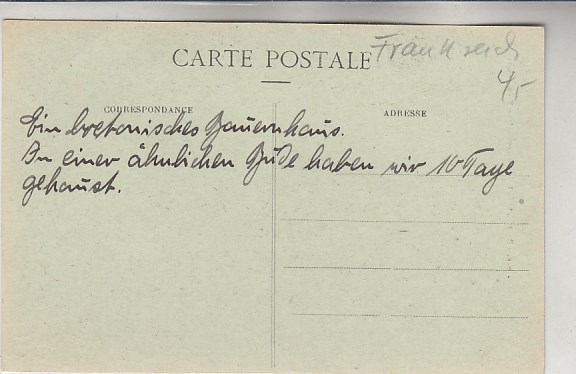 CARTE POSTALE
Frankreich
4,-
CORRESPONDANCE
ADRESSE
Ein bretonisches Bauernhaus.
In einer ähnlichen Bude haben wir 10 Tage
gehaust.